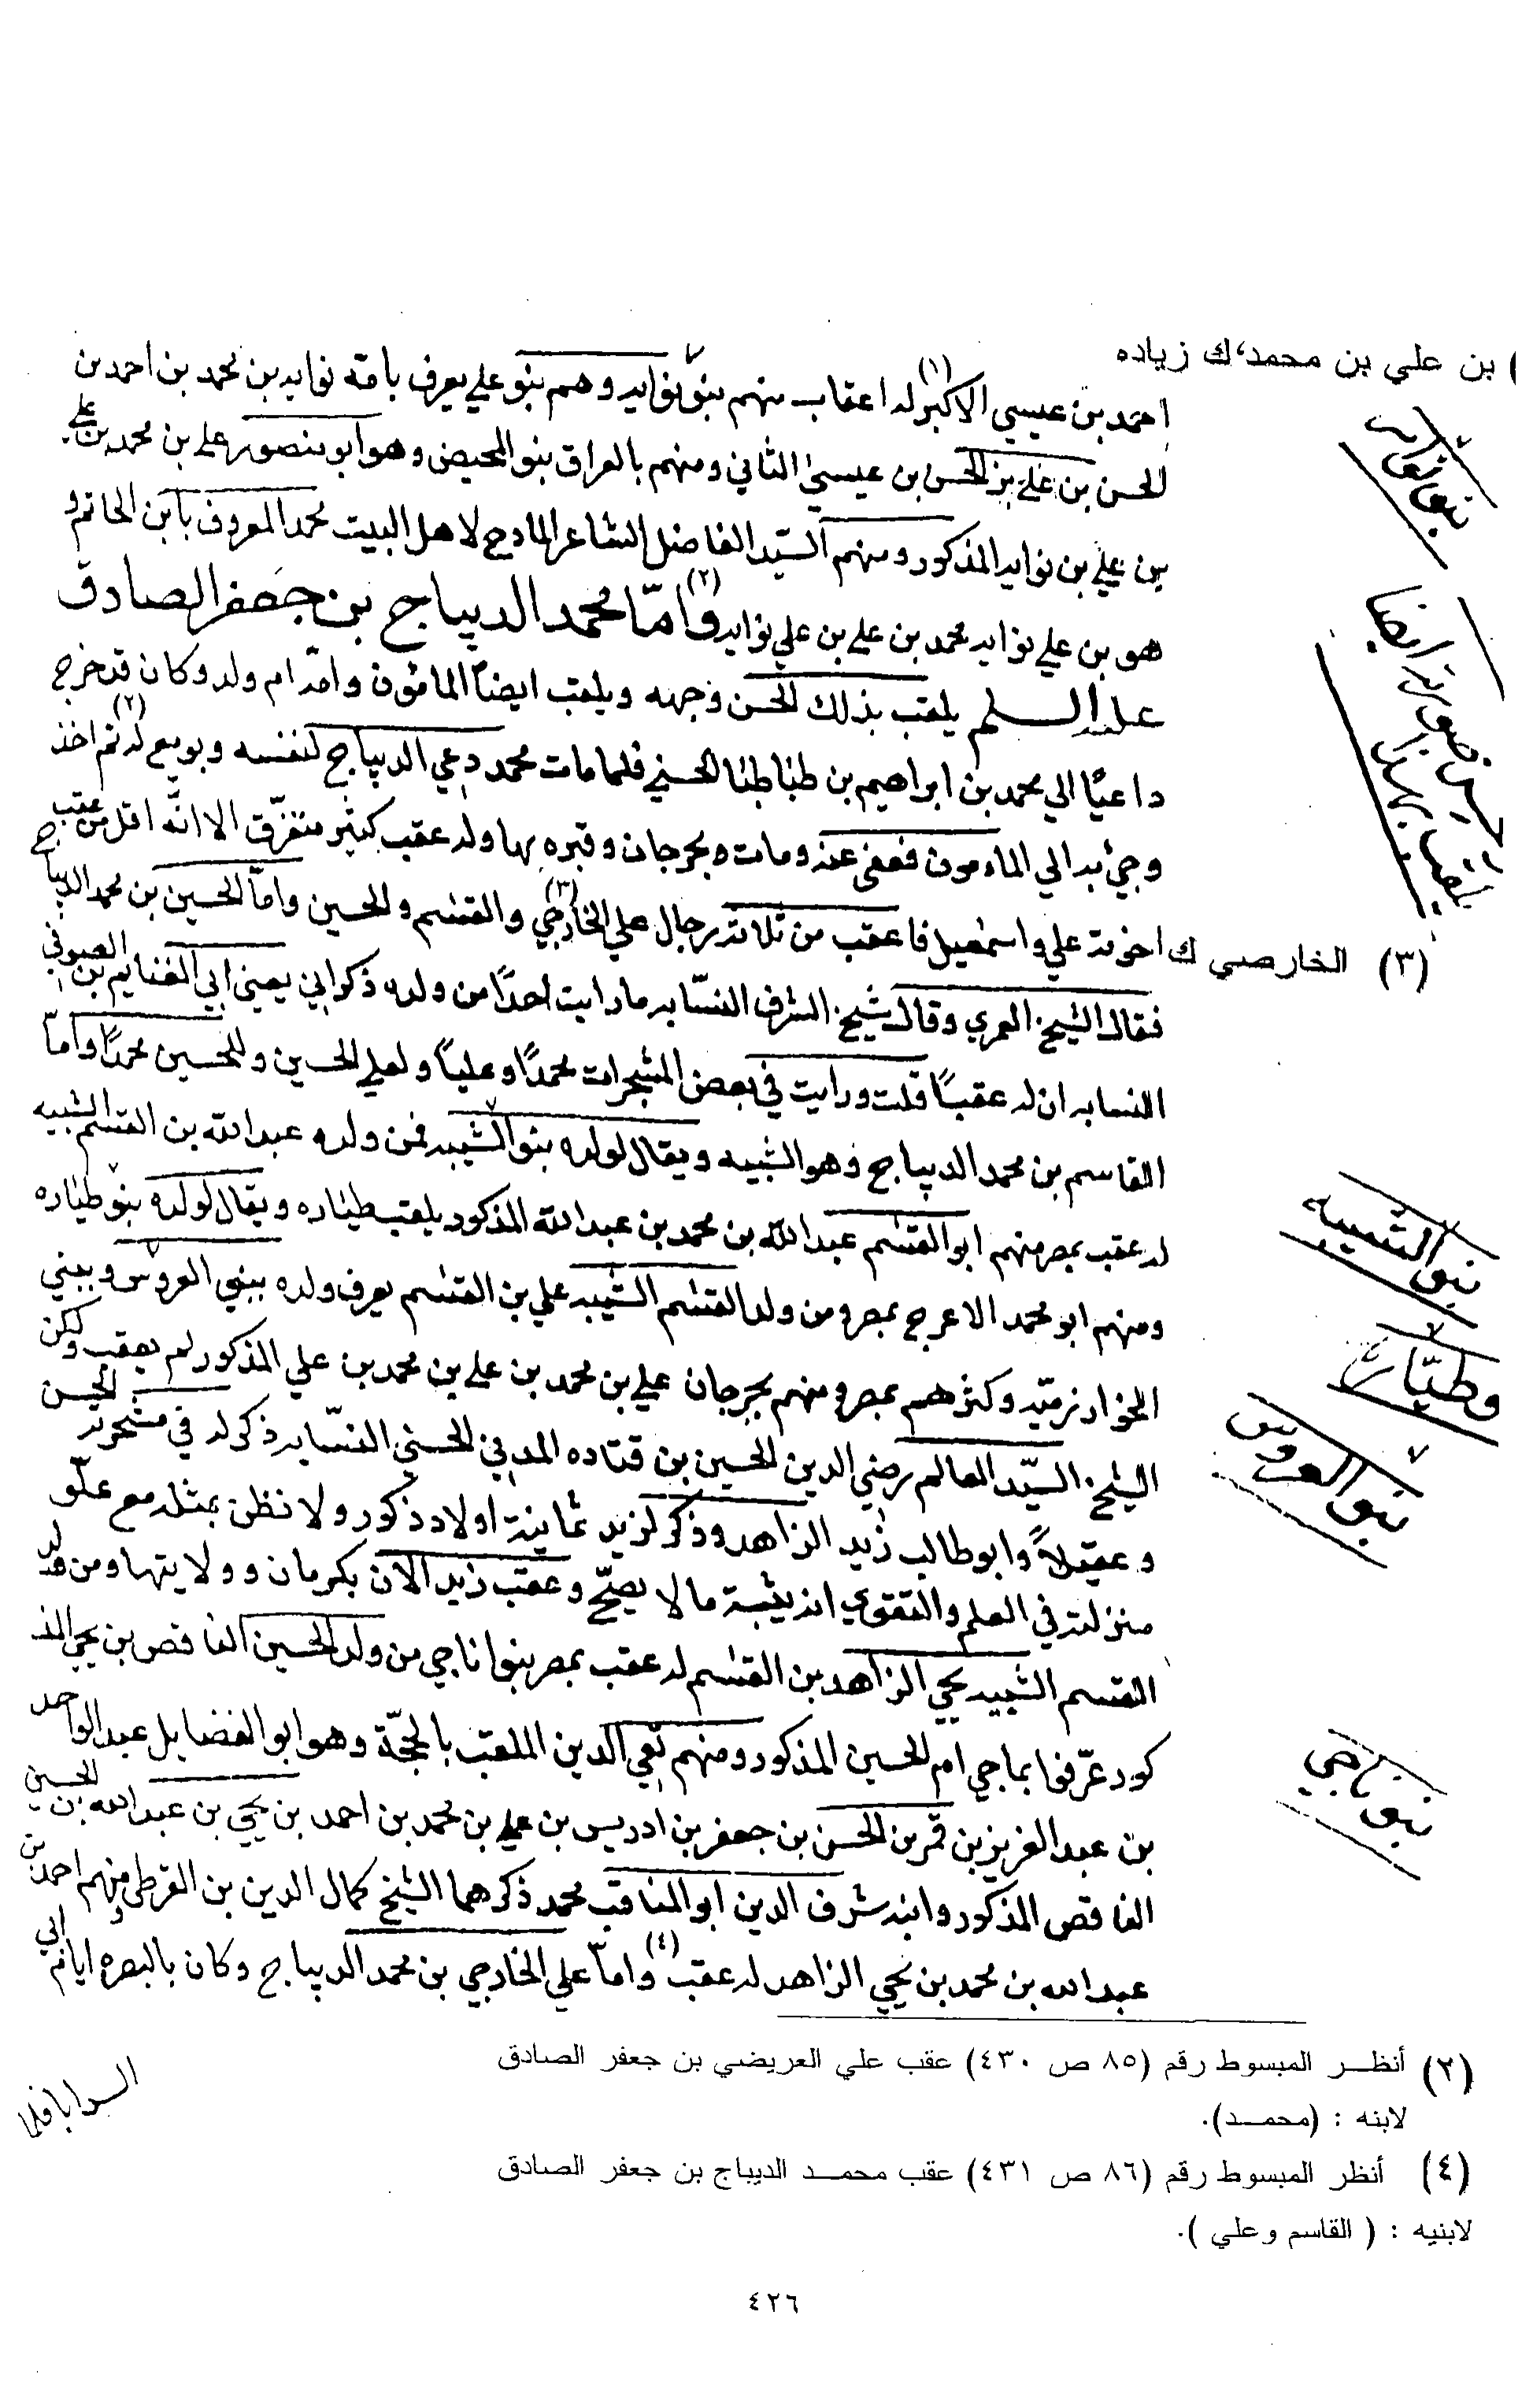 بن علي بن محمد، ك زياده
احمد بن عيسي الاكبر (١) له اعقاب منهم بنو نوايه وهم بنو علي يعرف بامه نوايه بن محمد بن احمد بن
الحسن بن علي بن الحسن بن عيسي الثاني ومنهم بالعراق بنو المحيض وهو ابو منصور علي بن محمد بن علي
بن علي بن نوايه المذكور ومنهم السيد الفاضل الشاعر المادح لاهل البيت محمد المعروف بابن الحاتم و
هو بن علي نوايه محمد بن علي بن علي نوايه (٢) وامّا محمد الديباج بن جعفر الصادق
عليه السلم يلقب بذلك لحسن وجهه ويلقب ايضاً المامون وامه ام ولد وكان قد خرج
داعيًا الي محمد بن ابراهيم بن طباطبا الحسني فلما مات محمد دعي الديباج لنفسه وبويع له (٢) ثم اخذ
وجئ به الي المامون فعفي عنه ومات بجرجان وقبره بها وله عقب كثير متفرّق الا انّه اقل من عقب
اخوته علي واسمعيل فاعقب من ثلاثة رجال علي الخارجي (٣) والقسم والحسين وامّا الحسين بن محمد الديباج
(٣) الخارصي ك
فقال الشيخ العمري وقال شيخ الشرف النسّابه ما رايت احدًا من ولده ذكر ابي يعني ابي الغنايم بن الصوفي
النسابه ان له عقبًا قلت ورايت في بعض المشجرات محمدًا وعليًا ولعلي الحسين وللحسين محمدًا وامّا
القاسم بن محمد الديباج وهو الشبيه ويقال لولده بنو الشبيه فمن ولده عبدالله بن القسم الشبيه
له عقب بمصر منهم ابو القسم عبدالله بن محمد بن عبدالله المذكور يلقب طياره ويقال لولده بنو طياره
ومنهم ابو محمد الاعرج بمصر ومن ولد القسم الشبيه علي بن القسم يعرف ولده ببني العروس وببني
الخوارزميّه وكثرهم بمصر ومنهم بجرجان علي بن محمد بن علي بن محمد بن علي المذكور لم يعقب ولكن
الشيخ السيّد العالم رضي الدين الحسين بن قتاده المدني الحسني النسّابه ذكر له في مشجره الحسن
وعقيلاً وابو طالب زيد الزاهد وذكر لزيد ثمانية اولاد ذكور ولا نظن بمثله مع علّو
منزلته في العلم والتقوي انه يثبت ما لا يصحّ وعقب زيد الان بكرمان وولايتها ومن ولد
القسم الشبيه يحيي الزاهد بن القسم له عقب بمصر بنوا ناجي من ولد الحسين الناقص بن يحيي المذ
كور عرّفوا بماجي ام الحسين المذكور ومنهم تقي الدين الملقب بالحجّة وهو ابو الفضايل عبد الواحد
بن عبد العزيز بن قمر بن الحسن بن جعفر بن ادريس بن علي بن محمد بن احمد بن يحيي بن عبدالله بن الحسين
الناقص المذكور وابنه شرف الدين ابو المناقب محمد ذكرهما الشيخ كمال الدين بن القرطي ومنهم احمد بن
عبدالله بن محمد بن يحيي الزاهد له عقب (٤) وامّا علي الخارجي بن محمد الديباج وكان بالبصره ايام ابي
السرايا فلما
بنو نوايه
بنو الشبيه
وطيّاره
بنو العروس
بنو ناجي
(٢) أنظر المبسوط رقم (٨٥ ص ٤٣٠) عقب علي العريضي بن جعفر الصادق
لابنه : (محمد).
(٤) أنظر المبسوط رقم (٨٦ ص ٤٣١) عقب محمد الديباج بن جعفر الصادق
لابنيه : ( القاسم وعلي ).
٤٢٦